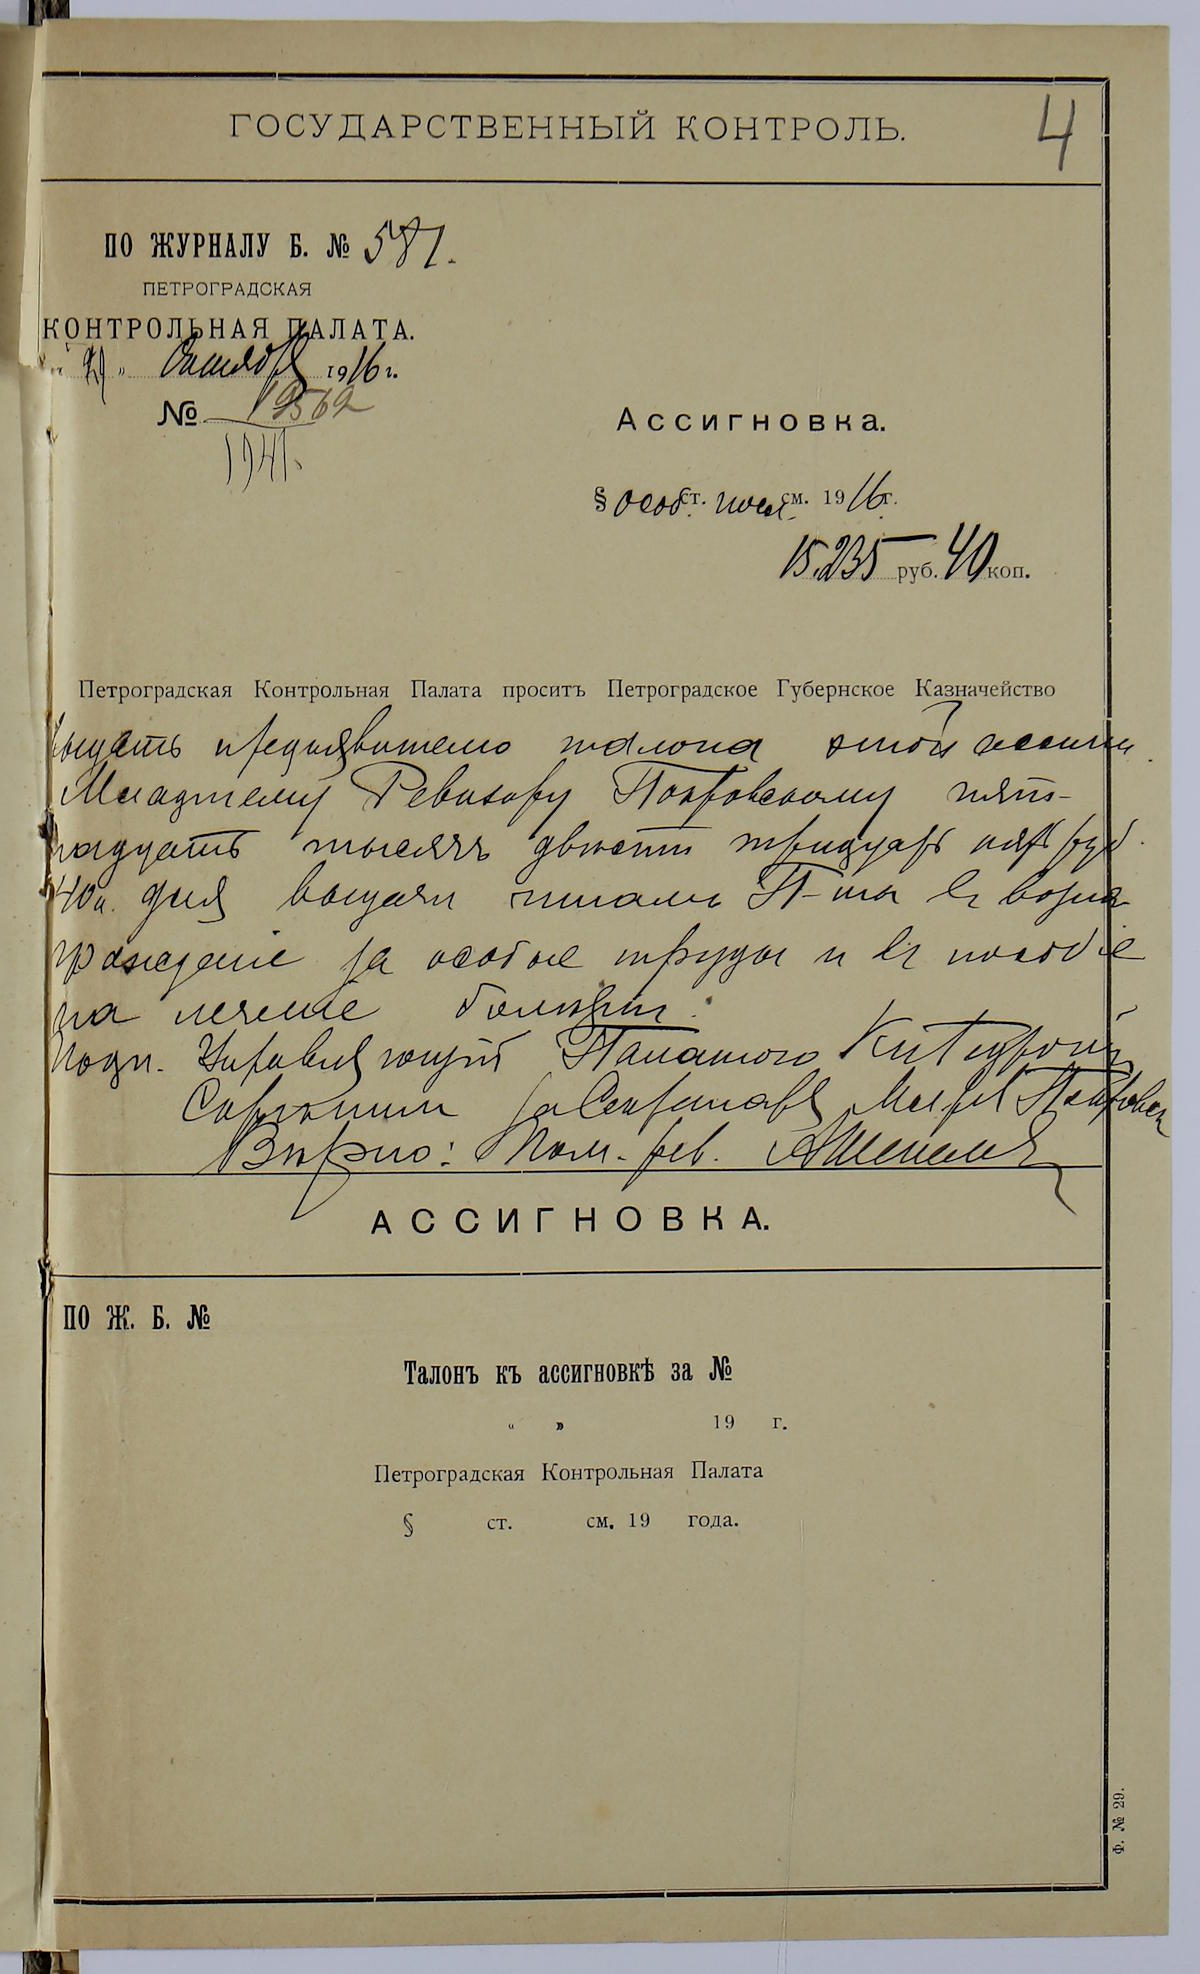 ГОСУДАРСТВЕННЫЙ КОНТРОЛЬ.
4
ПО ЖУРНАЛУ Б. № 581.
ПЕТРОГРАДСКАЯ
КОНТРОЛЬНАЯ ПАЛАТА.
" Октября 1916 г.
№ 12562
1941.
Ассигновка.
§ особ. ст. посл. см. 1916 г.
15.235 руб. 40 коп.
Петроградская Контрольная Палата проситъ Петроградское Губернское Казначейство
выдать предъявителю талона этой ассигн.
Младшему Ревизору Покровскому пят-
надцать тысячъ двѣсти тридцать пять руб.
40 к. для выдачи чинамъ П-ты въ возна-
гражденіе за особые труды и въ пособіе
на леченіе болѣзни.
Подп. Управляющій Палатою
Скрѣпилъ за Секретаря Мл. рев. Покровск
Вѣрно: Пом. рев.
АССИГНОВКА.
ПО Ж. Б. №
Талонъ къ ассигновкѣ за №
" " 19 г.
Петроградская Контрольная Палата
§ ст. см. 19 года.
Ф. № 29.